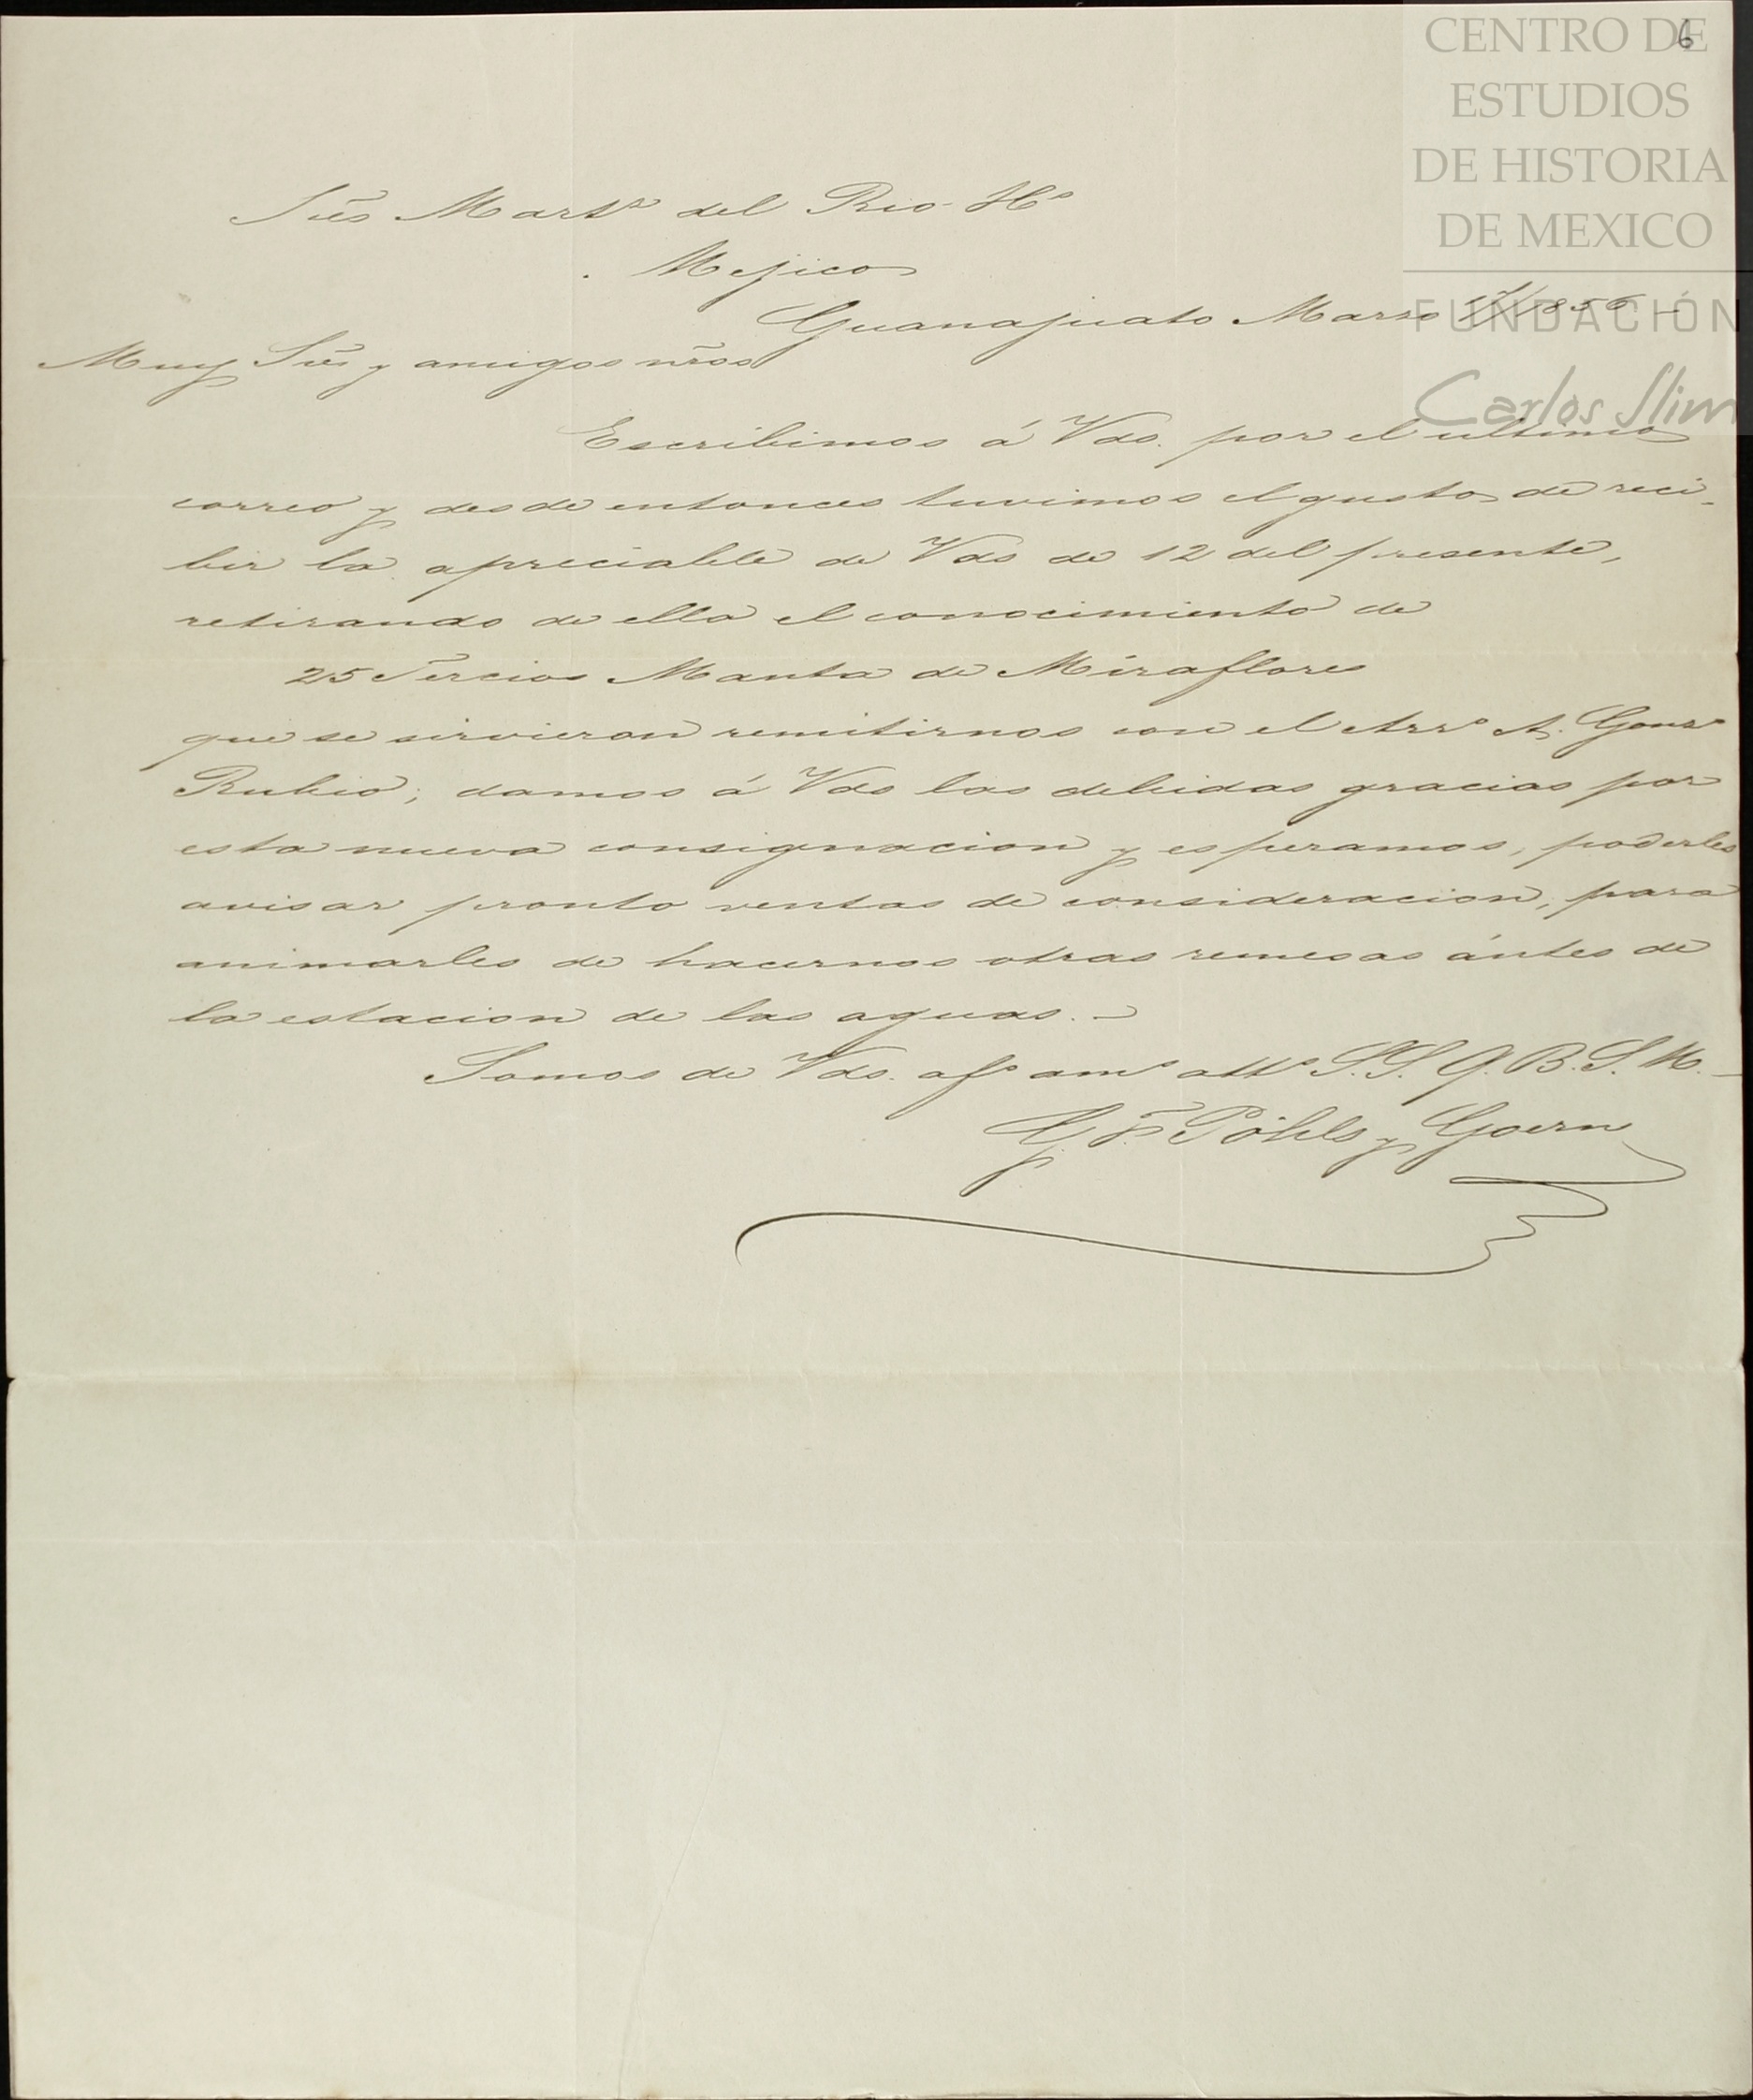 6
CENTRO DE
ESTUDIOS
DE HISTORIA
DE MEXICO
FUNDACIÓN
Carlos Slim
Sres Martz del Rio Hs
Mejico
Guanajuato Marzo 1856.
Muy Sres y amigos nros
Escribimos á Vds. por el ultimo
correo y desde entonces tuvimos el gusto de reci-
bir la apreciable de Vds de 12 del presente,
retirando de ella el conocimiento de
25 Tercios Manta de Miraflores
que se sirvieron remitirnos con el Arro A. Gonzo
Rubio; damos á Vds las debidas gracias por
esta nueva consignacion y esperamos, poderles
avisar pronto ventas de consideracion, para
animarles de hacernos otras remesas ántes de
la estacion de las aguas. -
Somos de Vds. afs ams atts S.S. Q. B. S. M. -
G. F. Pöhls y Goern